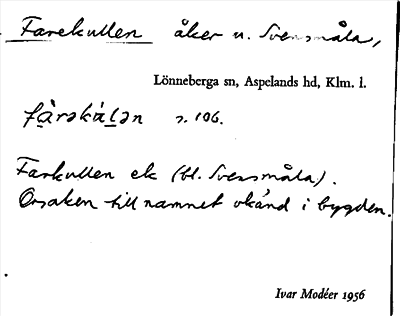 Farekullen åker u. Svensmåla,
Lönneberga sn, Aspelands hd, Klm. l.
fàrəkúlən s. 106.
Farkullen ek (bl. Svensmåla).
Orsaken till namnet okänd i bygden.
Ivar Modéer 1956